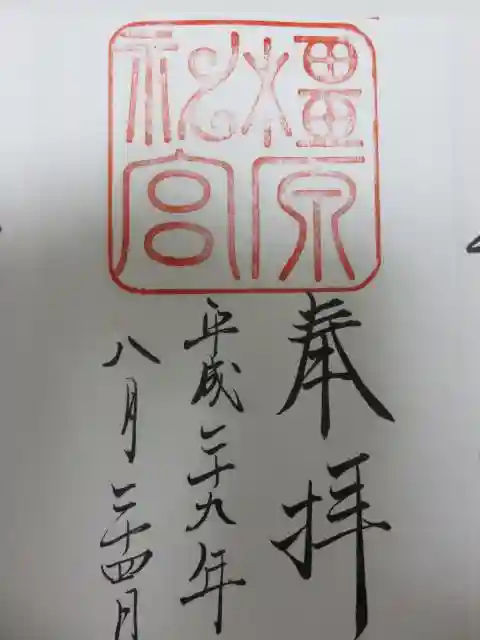 橿原
神宮
奉拝
平成二十九年
八月二十四日